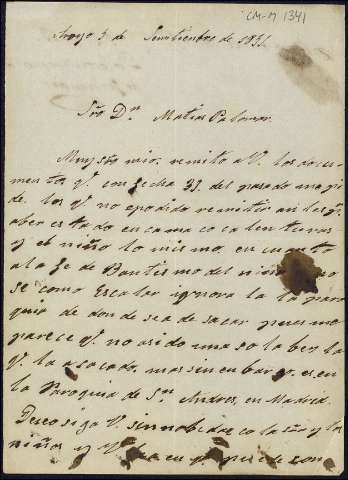 CM-M 1341
Arroyo 3 de Semtiembre de 1831.
Sr. Dn. Matias Palomar.
Muy Sr. mio. remito a V. los docu
mentos q. con fecha 31. del pasado me pi
de. los q. no e podido remitir antes pr.
aber estado en cama co calenturas
y el niño lo mismo. en cuanto
a la fe de Bautismo del niño no
se como Escalar ignora la la paro
quia de donde se a de sacar pues me
parece q. no a sido una sola bez la
q. la a sacado, mas sin enbargo es en
la Paroquia de Sn. Andres, en Madrid.
Deseo siga V. sin nobedad co la Sra. y los
niños y